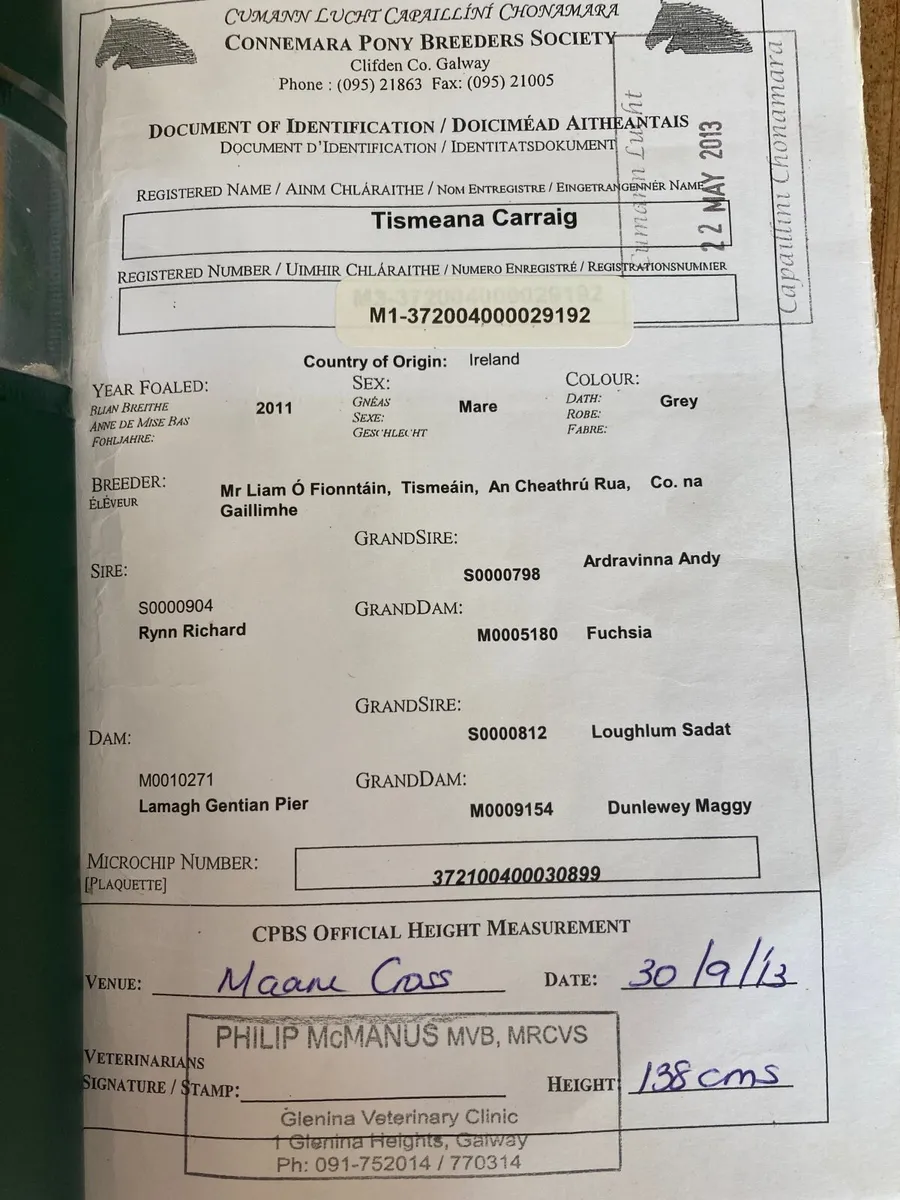 Cumann Lucht Capaillíní Chonamara
Connemara Pony Breeders Society
Clifden Co. Galway
Phone : (095) 21863 Fax: (095) 21005
Cumann Lucht
22 MAY 2013
Capaillini Chonamara
Document of Identification / Doiciméad Aitheantais
Document d'Identification / Identitatsdokument
Registered Name / Ainm Chláraithe / Nom Entregistre / Eingetrangennér Name
Tismeana Carraig
Registered Number / Uimhir Chláraithe / Numero Enregistré / Registrationsnummer
M3-372004000029192
M1-372004000029192
Country of Origin: Ireland
Year Foaled: Sex: Colour:
Blian Breithe Gnéas Dath:
2011 Mare Grey
Anne de Mise Bas Sexe: Robe:
Fohljahre: Geschlecht Fabre:
Breeder: Mr Liam Ó Fionntáin, Tismeáin, An Cheathrú Rua, Co. na
Éléveur Gaillimhe
GrandSire:
Sire: S0000798 Ardravinna Andy
S0000904 GrandDam:
Rynn Richard M0005180 Fuchsia
GrandSire:
Dam: S0000812 Loughlum Sadat
M0010271 GrandDam:
Lamagh Gentian Pier M0009154 Dunlewey Maggy
Microchip Number: 372100400030899
[Plaquette]
CPBS Official Height Measurement
Venue: Maam Cross Date: 30/9/13
PHILIP McMANUS MVB, MRCVS
Veterinarians
Signature / Stamp: Height 138 cms
Glenina Veterinary Clinic
1 Glenina Heights, Galway
Ph: 091-752014 / 770314